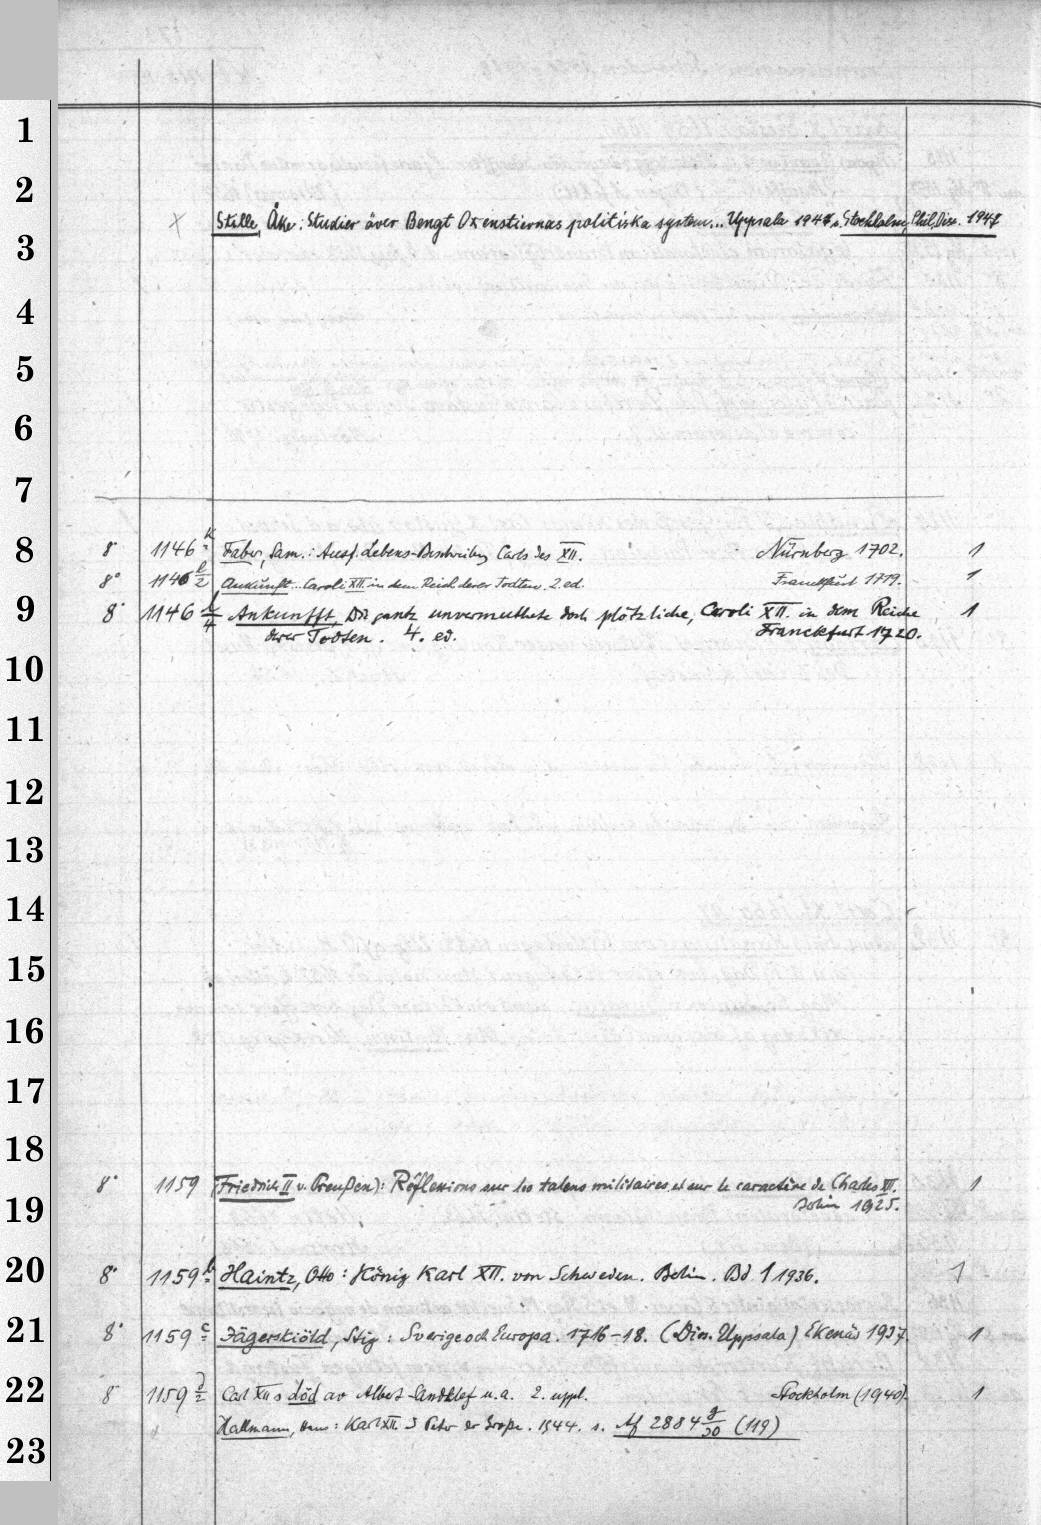 1
2
Stille, Åke: Studier över Bengt Oxenstiernas politiska system... Uppsala 1947 s. Stockholm, Phil. Diss. 1947
3
4
5
6
7
8 8° 1146 k Faber, Sam.: Ausf. Lebens-Beschreibung Carls des XII. Nürnberg 1702. 1
8° 1146 l/2 Ankunft... Caroli XII in dem Reich derer Todten. 2. ed. Franckfurt 1719. 1
9 8° 1146 l/4 Ankunfft, Die gantz unvermuthete doch plötzliche, Caroli XII. in dem Reiche 1
derer Todten. 4. ed. Franckfurt 1720.
10
11
12
13
14
15
16
17
18
8° 1159 (Friedrich II v. Preußen): Réflexions sur les talens militaires et sur le caractère de Charles XII. 1
19 1925.
20 8° 1159 b Haintz, Otto: König Karl XII. von Schweden. Berlin. Bd 1 1936. 1
21 8° 1159 c Jägerskiöld, Stig: Sverige och Europa. 1716-18. (Diss. Uppsala) Ekenäs 1937 1
22 8° 1159 d/2 Carl XII s död av Albert Sandklef u.a. 2. uppl. Stockholm (1940). 1
Hallmann, Hans: Karl XII. u Peter der Große. 1944. s. Af 2884 g/30 (119)
23